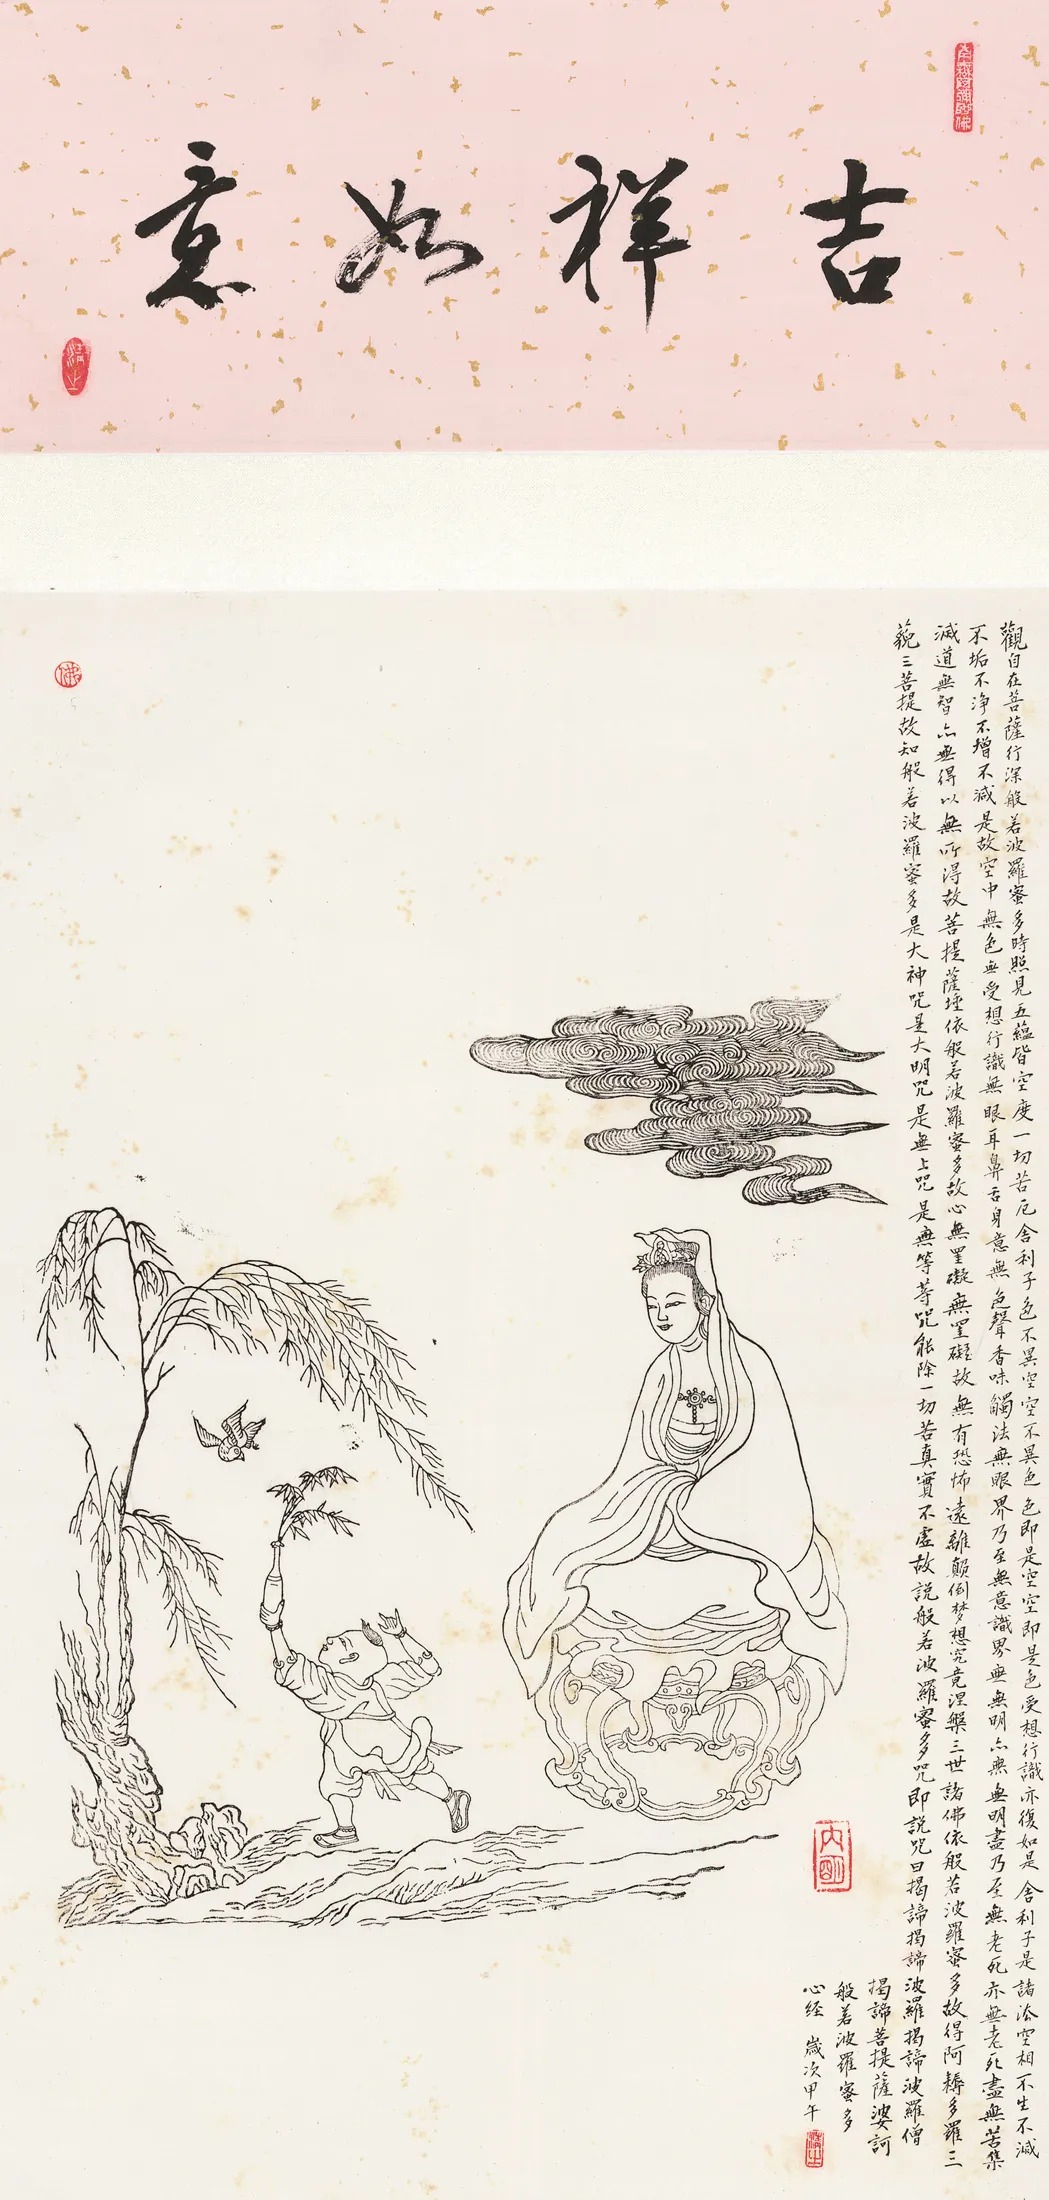 吉祥如意
南無阿彌陀佛
觀自在菩薩行深般若波羅蜜多時照見五蘊皆空度一切苦厄舍利子色不異空空不異色色即是空空即是色受想行識亦復如是舍利子是諸法空相不生不滅
不垢不净不增不減是故空中無色無受想行識無眼耳鼻舌身意無色聲香味觸法無眼界乃至無意識界無無明亦無無明盡乃至無老死亦無老死盡無苦集
滅道無智亦無得以無所得故菩提薩埵依般若波羅蜜多故心無罣礙無罣礙故無有恐怖遠離顛倒梦想究竟涅槃三世諸佛依般若波羅蜜多故得阿耨多羅三
藐三菩提故知般若波羅蜜多是大神咒是大明咒是無上咒是無等等咒能除一切苦真實不虛故説般若波羅蜜多咒即説咒曰揭諦揭諦波羅揭諦波羅僧
揭諦菩提薩婆訶
般若波羅蜜多
心经 歲次甲午
内明
佛